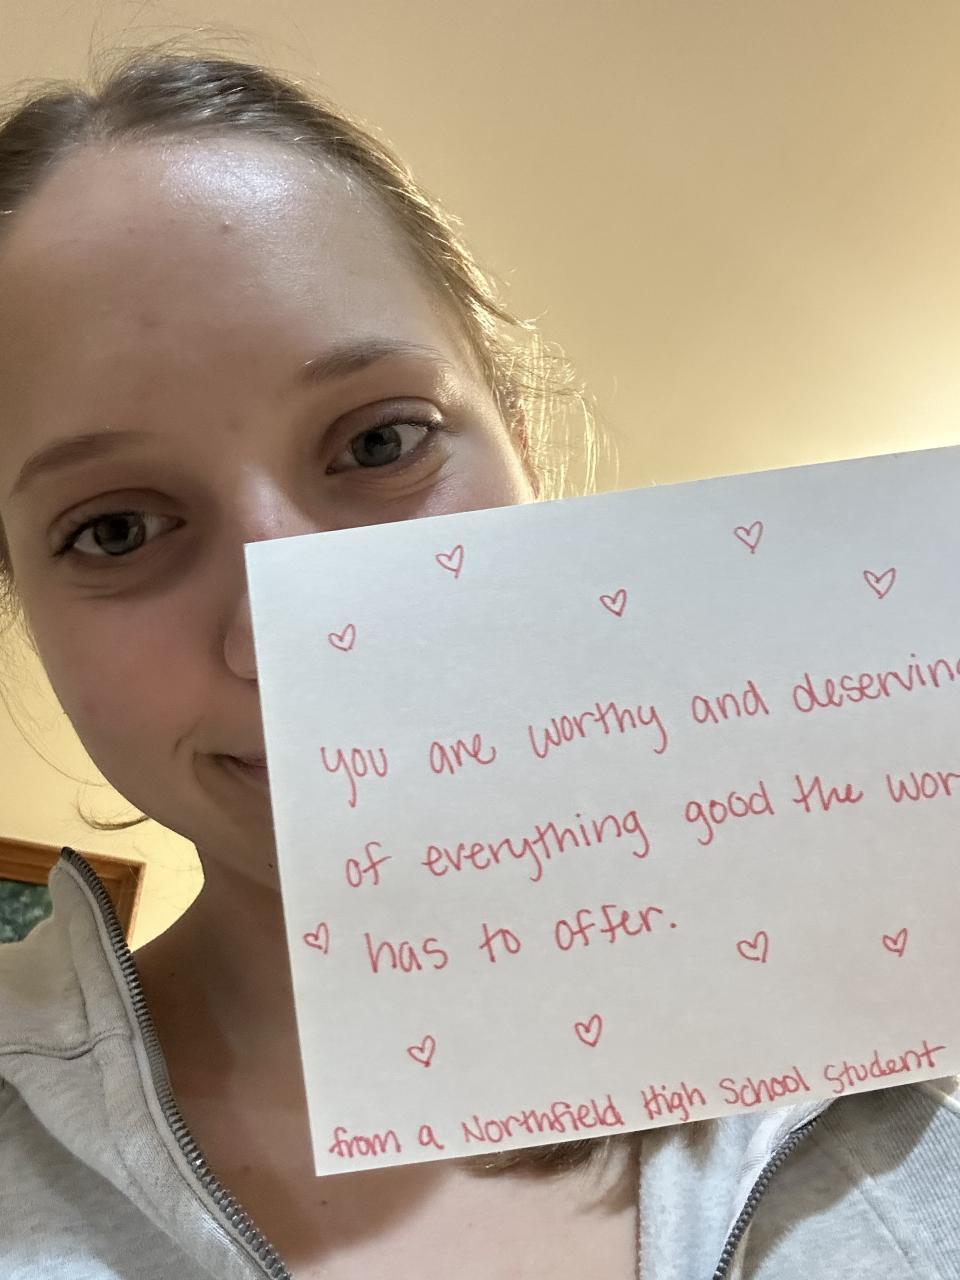 you are worthy and deserving
of everything good the wor
has to offer.
from a Northfield High School Student